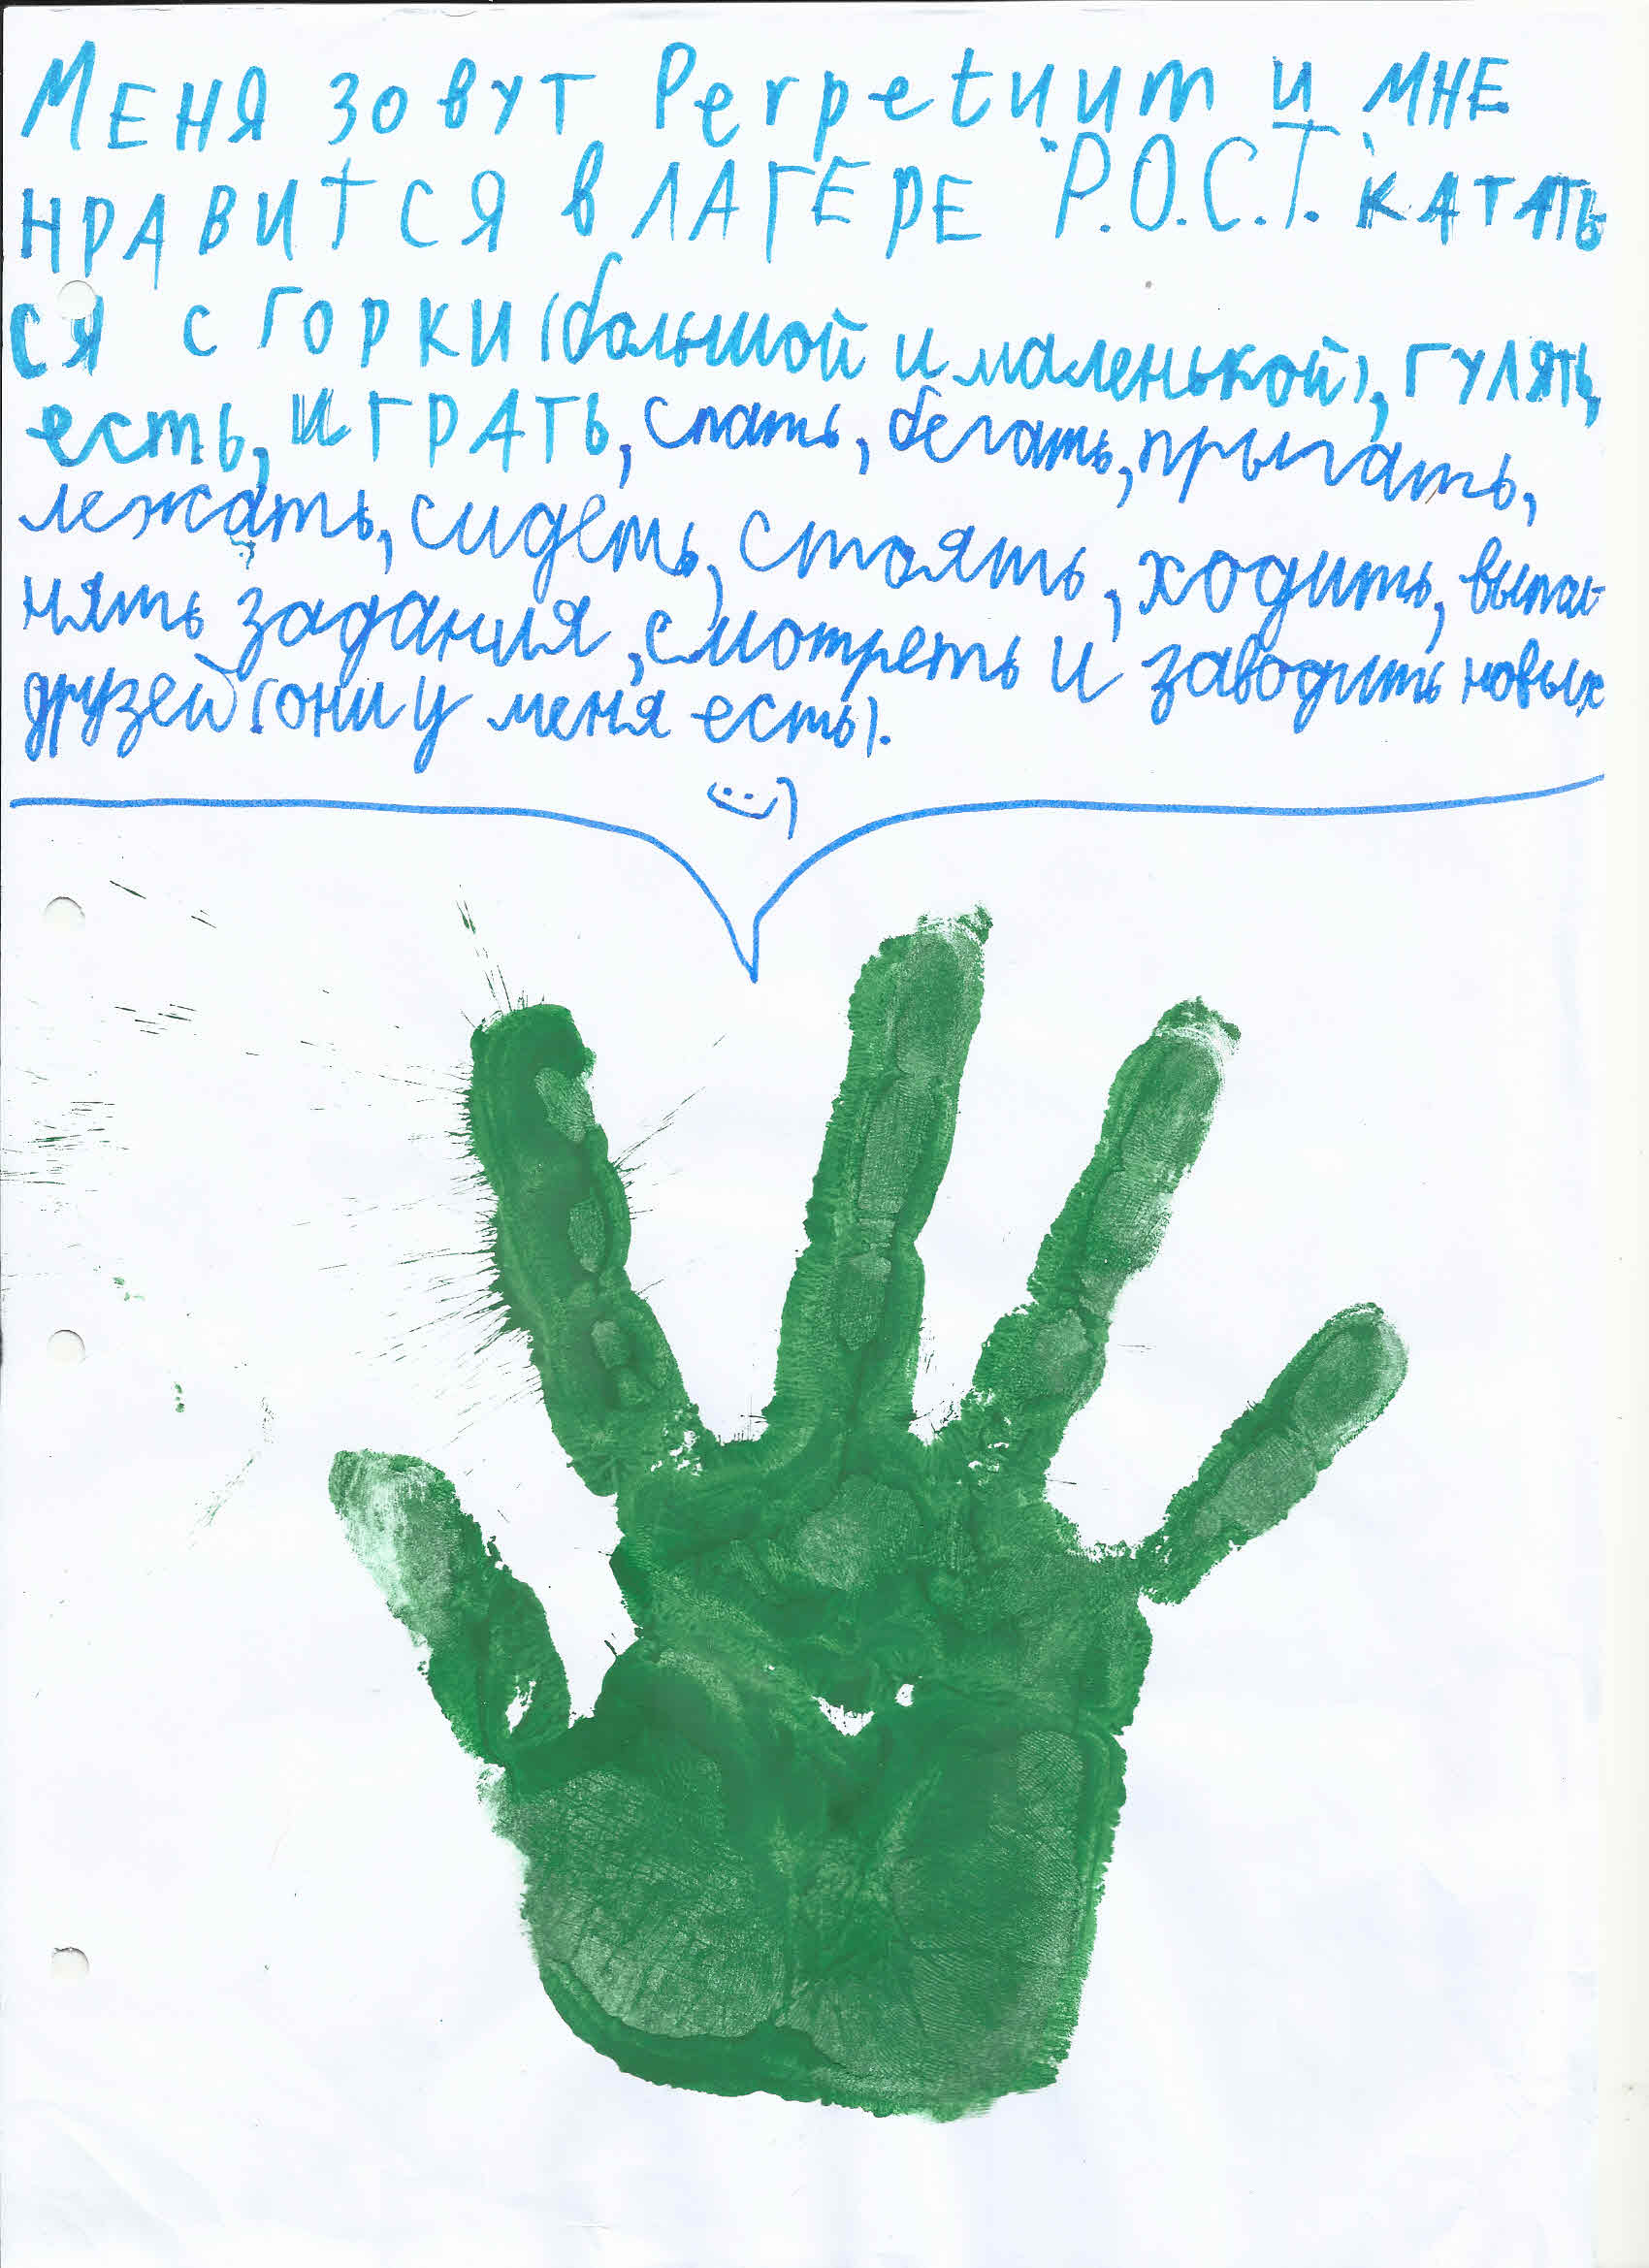 Меня зовут Perpetuum и мне
нравится в лагере "Р.О.С.Т." катать
ся с горки (большой и маленькой), гулять,
есть, играть, спать, бегать, прыгать,
лежать, сидеть, стоять, ходить, выпол-
нять задания, смотреть и заводить новых
друзей (они у меня есть).
:)